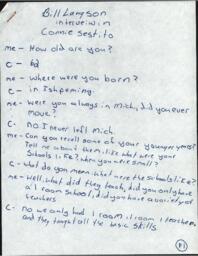 Bill Langson
interveiwin
Connie Sestito
me - How old are you?
C - 62
me - Where were you born?
C - in Ishpeming.
me - were you always in Mich, did you ever
move?
C - No I never left Mich.
me - Can you recall some of your younger years?
Tell me about them. like what were your
Schools like? when you were small?
C - what do you mean what were the schools like?
me - Well, what did they teach, did you only have
a 1 room school, did you have a variety of
teachers
C - no we only had 1 room, 1 room 1 teacher,
and they taught all the basic skills
P1